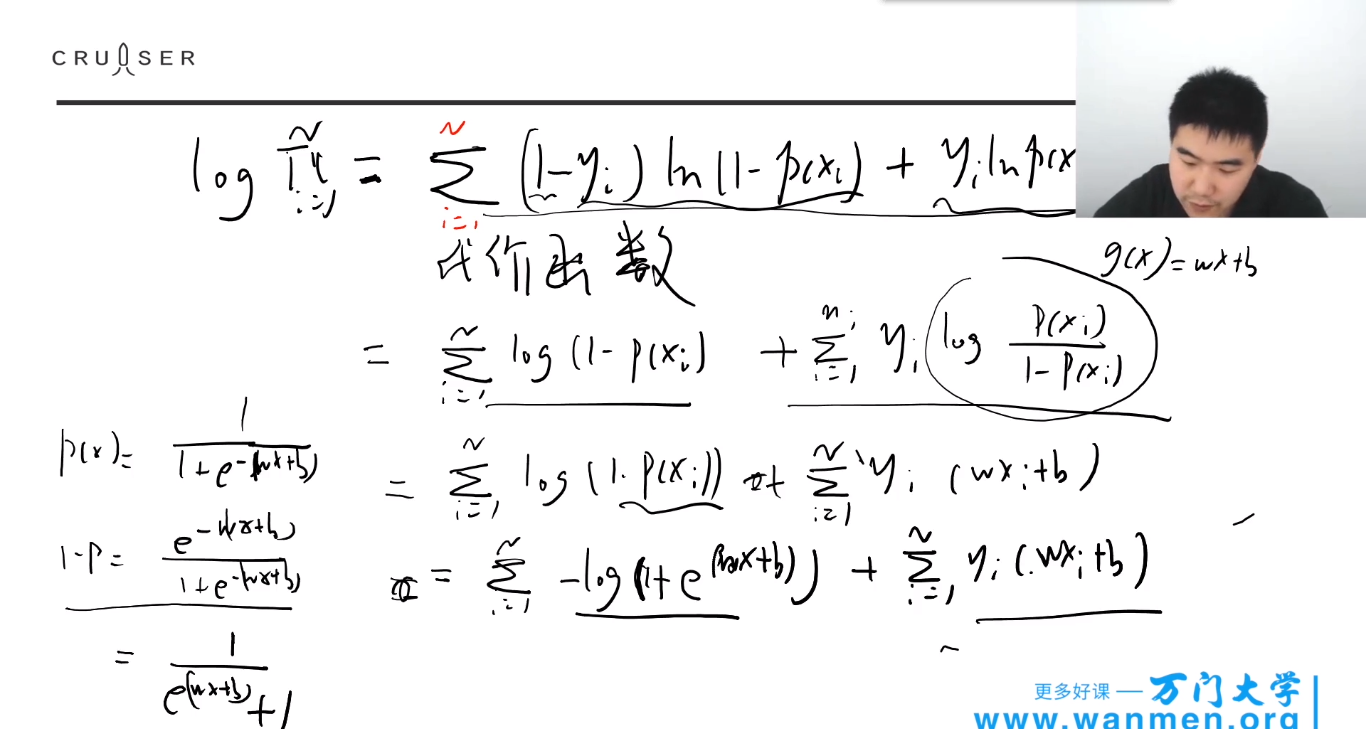 CRUISER
log π^N_{i=1} = Σ^N_{i=1} (1-y_i) ln(1-p(x_i) + y_i ln p(x
代价函数
g(x) = wx+b
= Σ^N_{i=1} log (1-p(x_i) + Σ^{n_i}_{i=1} y_i log P(x_i)/1-P(x_i)
p(x) = 1/1+e^{-(wx+b)}
= Σ^N_{i=1} log (1-p(x_i)) + Σ^N_{i=1} y_i (wx_i+b)
1-P = e^{-(wx+b)}/1+e^{-(wx+b)}
= Σ^N_{i=1} -log(1+e^{(wx+b)}) + Σ^N_{i=1} y_i (wx_i+b)
= 1/e^{(wx+b)}+1
更多好课 — 万门大学
www.wanmen.org